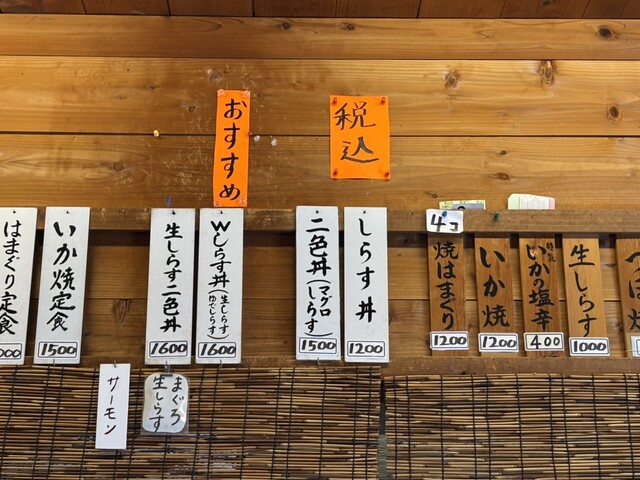 おすすめ
税込
はまぐり定食
000
いか焼定食
1500
生しらす二色丼
1600
Wしらす丼(生しらす ゆでしらす)
1600
二色丼(マグロ しらす)
1500
しらす丼
1200
4コ
焼はまぐり
1200
いか焼
1200
いかの塩辛
400
生しらす
1000
サーモン
まぐろ
生しらす